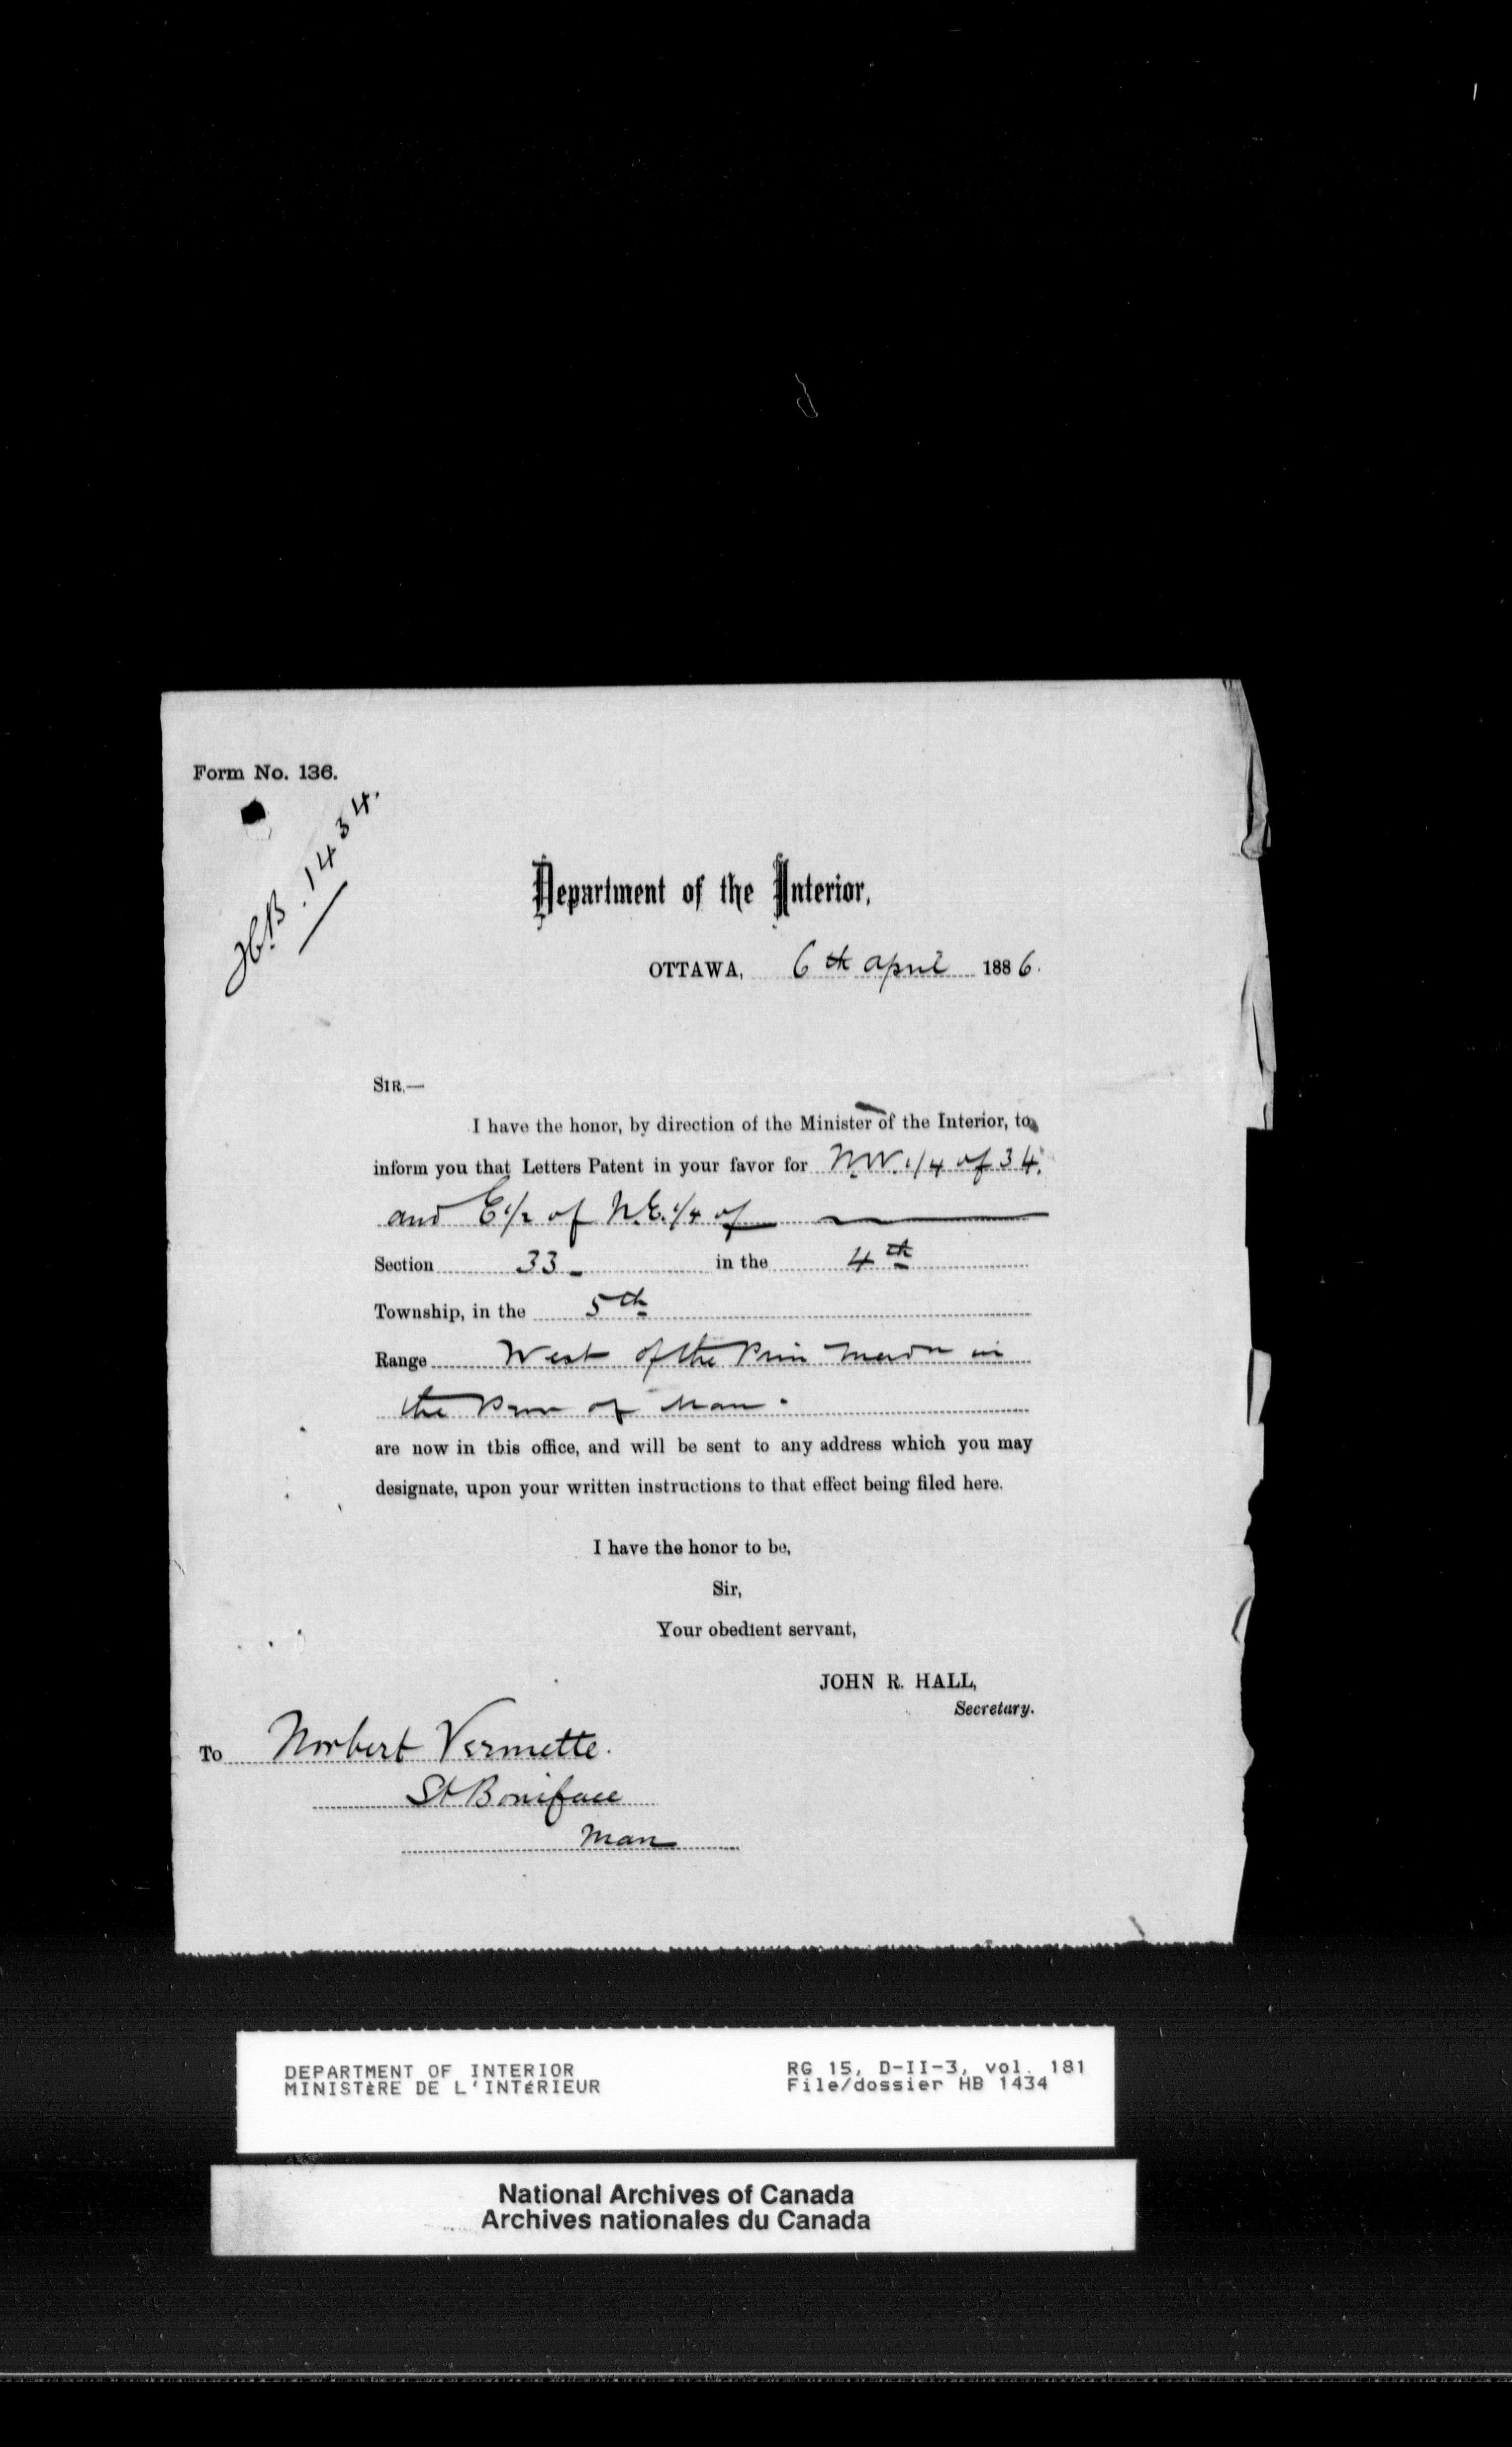 Form No. 136.
HB. 1434.
Department of the Interior,
OTTAWA, 6th April 1886.
SIR,—
I have the honor, by direction of the Minister of the Interior, to
inform you that Letters Patent in your favor for N.W. 1/4 of 34.
and E 1/2 of N.E. 1/4 of
Section 33 in the 4th
Township, in the 5th
Range West of the Prin Merdn in
the Prov of Man.
are now in this office, and will be sent to any address which you may
designate, upon your written instructions to that effect being filed here.
I have the honor to be,
Sir,
Your obedient servant,
JOHN R. HALL,
Secretary.
To Norbert Vermette.
St Boniface
Man
DEPARTMENT OF INTERIOR RG 15, D-II-3, vol. 181
MINISTÈRE DE L'INTÉRIEUR File/dossier HB 1434
National Archives of Canada
Archives nationales du Canada